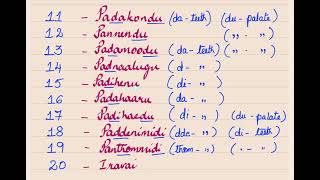 11 - Padakondu (da-teeth) (du-palate)
12 - Pannendu ( ,, . ,, )
13 - Padamoodu (da-teeth) ( ,, ,, )
14 - Padnaalugu (d- ,, )
15 - Padihenu (di- ,, )
16 - Padahaaru (da- ,, )
17 - Padihaedu (di- ,, (du-palate)
18 - Paddenimidi (dde- ,,) (di-teeth)
19 - Pantromnidi (throm- ,,) ( .- ,, )
20 - Iravai